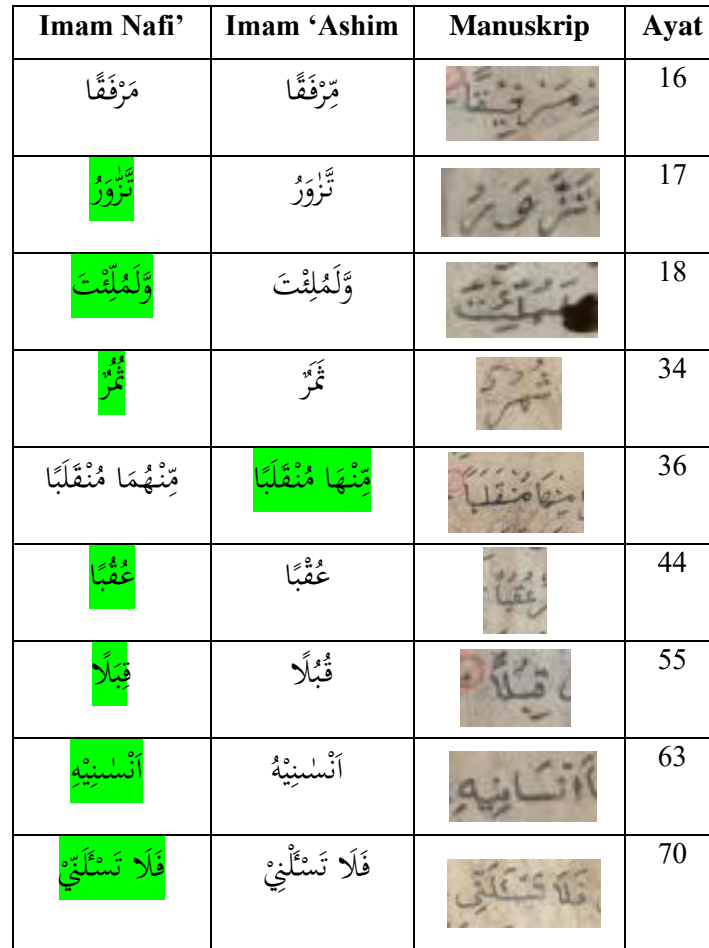 Imam Nafi’ Imam ‘Ashim Manuskrip Ayat
مَرْفَقًا مِّرْفَقًا 16
تَّزّٰوَرُ تَّزٰوَرُ 17
وَّلَمُلِّئْتَ وَّلَمُلِئْتَ 18
ثُمُرٌ ثَمَرٌ 34
مِّنْهُمَا مُنْقَلَبًا مِّنْهَا مُنْقَلَبًا مِنْهَا مُنْقَلَبًا 36
عُقُبًا عُقْبًا 44
قِبَلًا قُبُلًا 55
اَنْسٰىنِيْهِ اَنْسٰىنِيْهُ 63
فَلَا تَسْـَٔلَنِّيْ فَلَا تَسْـَٔلْنِيْ 70